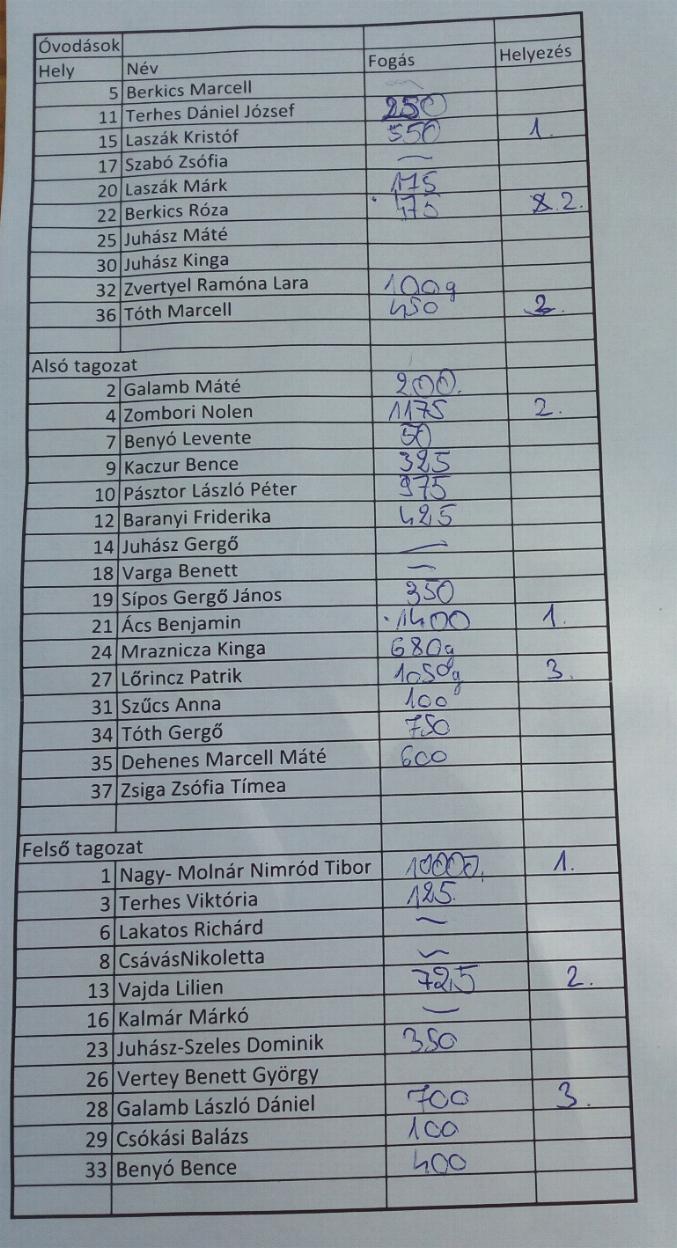 Óvodások
Hely Név Fogás Helyezés
5 Berkics Marcell ~
11 Terhes Dániel József 250
15 Laszák Kristóf 550 1.
17 Szabó Zsófia —
20 Laszák Márk 175
22 Berkics Róza 475 2.
25 Juhász Máté
30 Juhász Kinga
32 Zvertyel Ramóna Lara 100g
36 Tóth Marcell 450
Alsó tagozat
2 Galamb Máté 200.
4 Zombori Nolen 1175 2.
7 Benyó Levente 50
9 Kaczur Bence 325
10 Pásztor László Péter 975
12 Baranyi Friderika 425
14 Juhász Gergő —
18 Varga Benett —
19 Sípos Gergő János 350
21 Ács Benjamin 1400 1.
24 Mraznicza Kinga 680g
27 Lőrincz Patrik 1050g 3.
31 Szűcs Anna 100g
34 Tóth Gergő 750
35 Dehenes Marcell Máté 600
37 Zsiga Zsófia Tímea
Felső tagozat
1 Nagy- Molnár Nimród Tibor 10000. 1.
3 Terhes Viktória 125.
6 Lakatos Richárd —
8 CsávásNikoletta ~
13 Vajda Lilien 725 2.
16 Kalmár Márkó —
23 Juhász-Szeles Dominik 350
26 Vertey Benett György
28 Galamb László Dániel 700 3.
29 Csókási Balázs 100
33 Benyó Bence 400